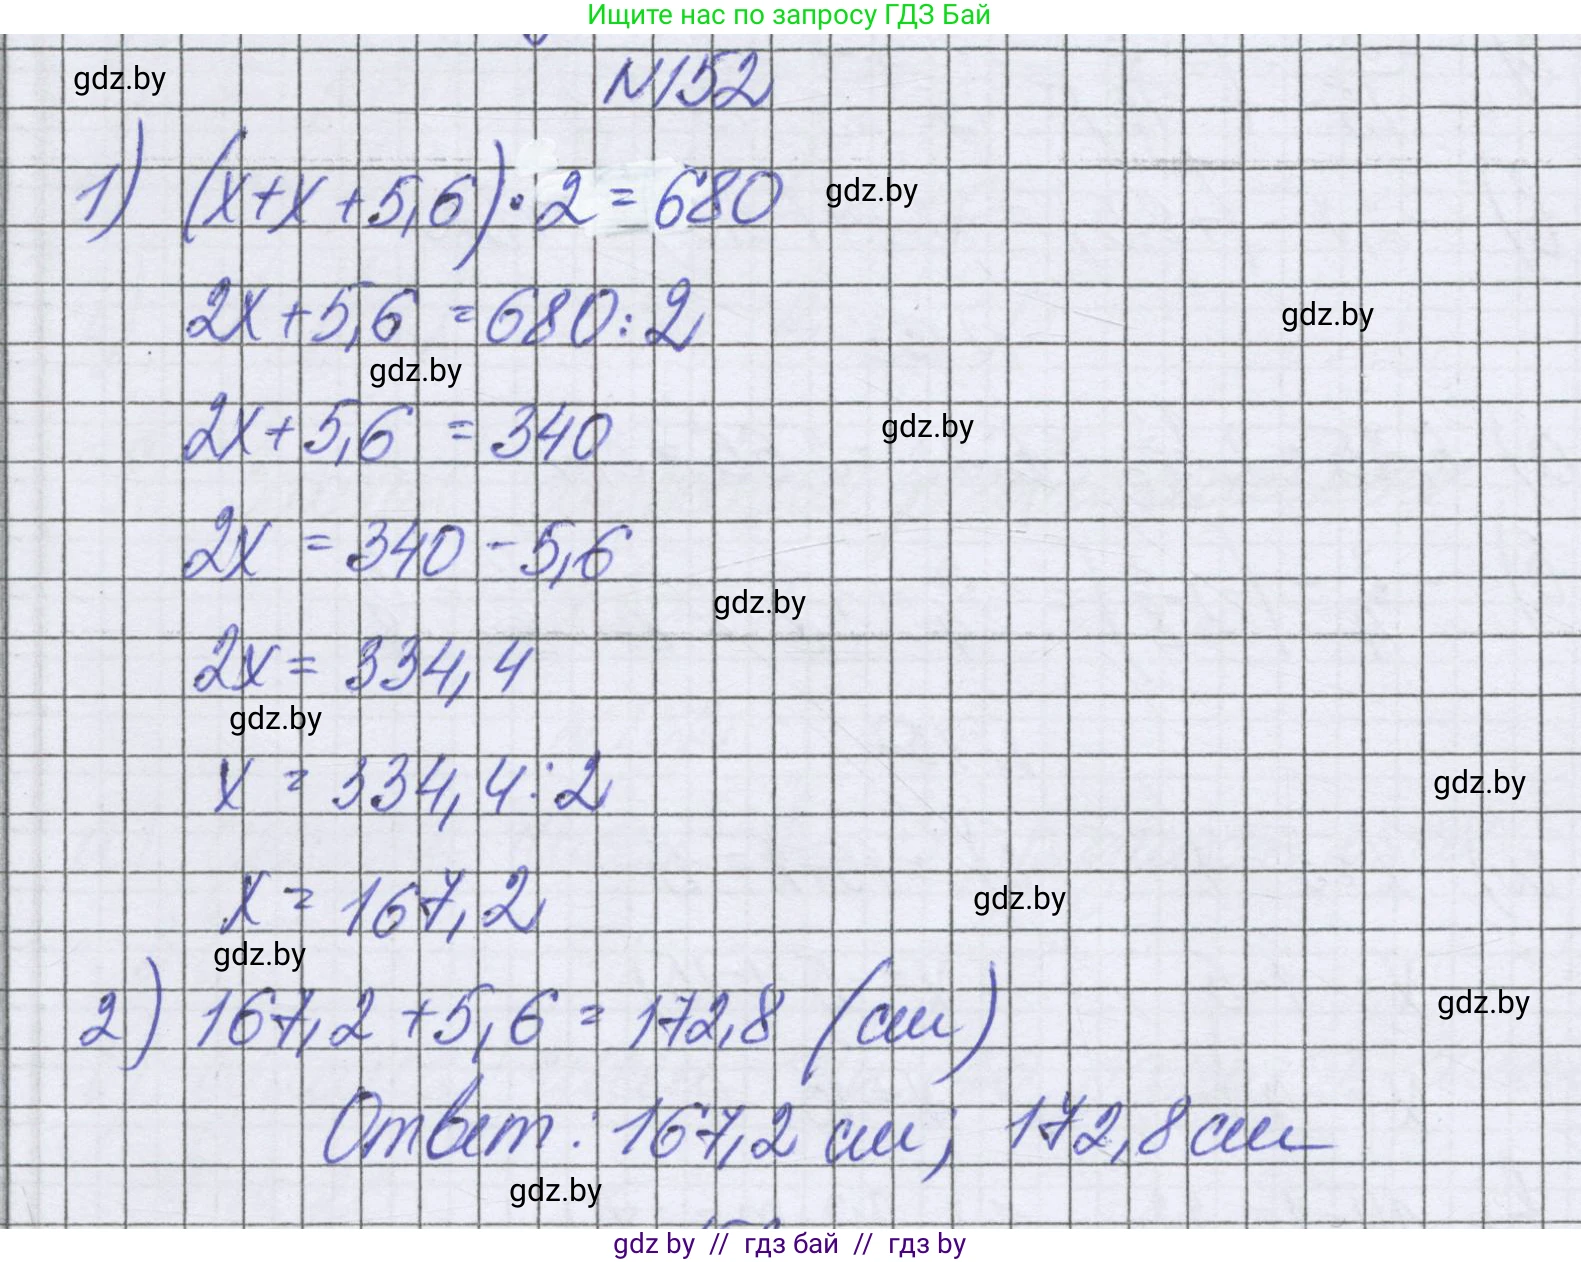 Ищите нас по запросу ГДЗ Бай
N152
gdz.by
1) (x+x+5,6)·2=680
gdz.by
2x+5,6=680:2
gdz.by
gdz.by
2x+5,6=340
gdz.by
2x=340-5,6
gdz.by
2x=334,4
gdz.by
x=334,4:2
gdz.by
x=167,2
gdz.by
gdz.by
2) 167,2+5,6=172,8 (см)
gdz.by
Ответ: 167,2 см; 172,8 см
gdz.by
gdz by // гдз бай // гдз by